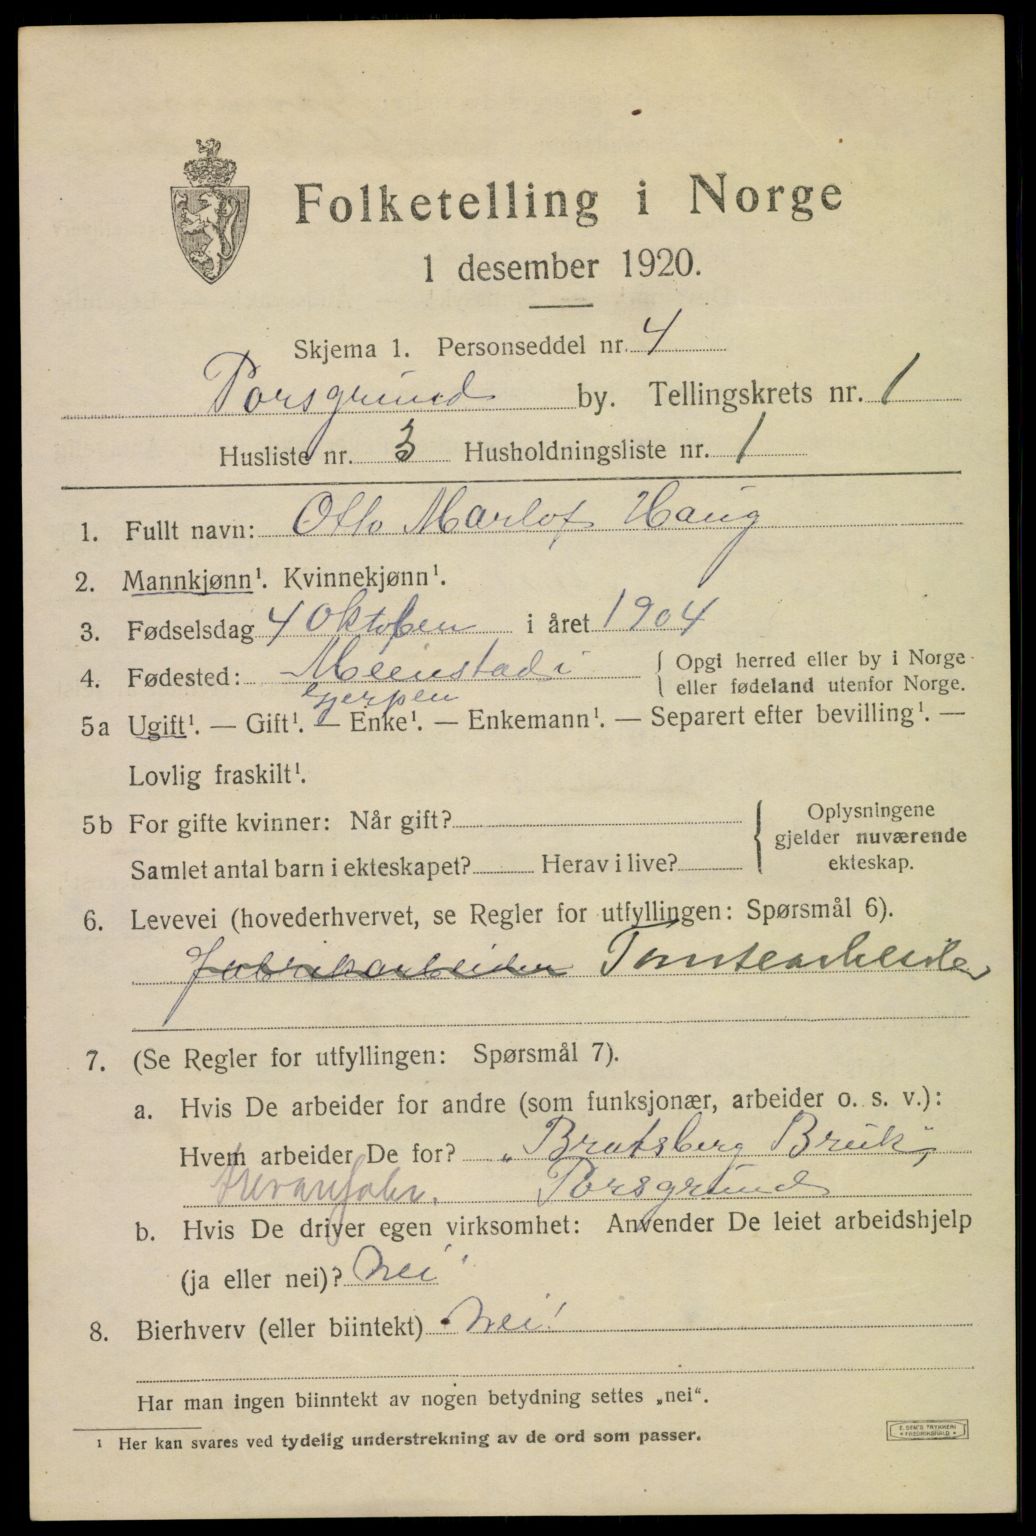 Folketelling i Norge
1 desember 1920.
Skjema 1. Personseddel nr. 4
Porsgrund by. Tellingskrets nr. 1
Husliste nr. 3 Husholdningsliste nr. 1
1. Fullt navn: Otto Marlof Haug
2. Mannkjønn¹. Kvinnekjønn¹.
3. Fødselsdag 4 Oktober i året 1904
4. Fødested: Meenstad i Gjerpen { Opgi herred eller by i Norge
eller fødeland utenfor Norge.
5a Ugift¹. — Gift¹. — Enke¹. — Enkemann¹. — Separert efter bevilling¹. —
Lovlig fraskilt¹.
5b For gifte kvinner: Når gift?
Samlet antal barn i ekteskapet? Herav i live?
Oplysningene
gjelder nuværende
ekteskap.
6. Levevei (hovederhvervet, se Regler for utfyllingen: Spørsmål 6).
Fabrikarbeider Tomtearbeider
7. (Se Regler for utfyllingen: Spørsmål 7).
a. Hvis De arbeider for andre (som funksjonær, arbeider o. s. v.):
Hvem arbeider De for? „Bratsberg Bruk",
Porsgrund
b. Hvis De driver egen virksomhet: Anvender De leiet arbeidshjelp
(ja eller nei)? Nei
8. Bierhverv (eller biintekt) Nei!
Har man ingen biinntekt av nogen betydning settes „nei".
¹ Her kan svares ved tydelig understrekning av de ord som passer.
E. SEM'S TRYKKERI
FREDRIKSHALD